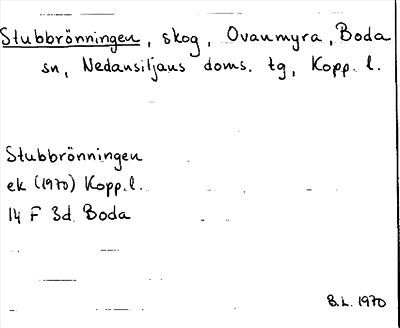 Stubbrönningen, skog, Ovanmyra, Boda
sn, Nedansiljans doms. tg, Kopp. l.
Stubbrönningen
ek (1970) Kopp. l.
14 F 3d Boda
B.L. 1970